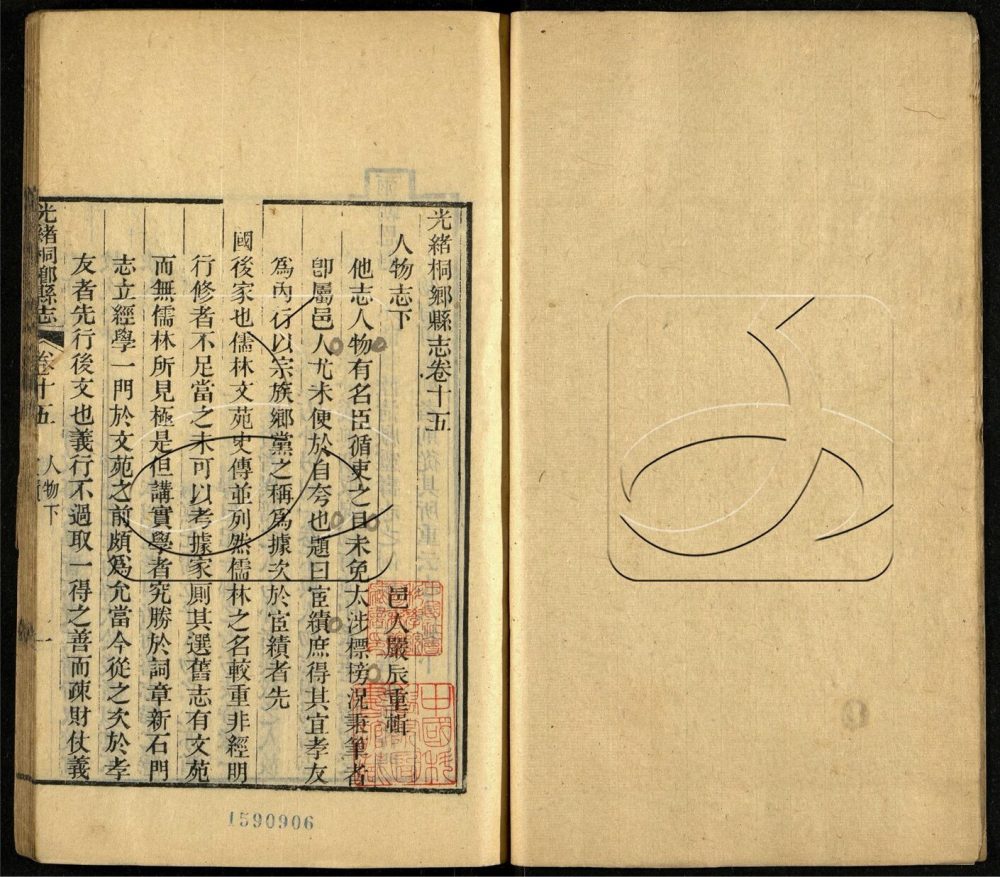 光緒桐鄉縣志卷十五
人物志下
邑人嚴辰重輯
他志人物有名臣循吏之目未免太涉標榜況秉筆者
卽屬邑人尤未便於自夸也題曰宦績庶得其宜孝友
爲內行以宗族鄉黨之稱爲據次於宦績者先
國後家也儒林文苑史傳並列然儒林之名較重非經明
行修者不足當之未可以考據家厠其選舊志有文苑
而無儒林所見極是但講實學者究勝於詞章新石門
志立經學一門於文苑之前頗爲允當今從之次於孝
友者先行後文也義行不過取一得之善而疎財仗義
光緒桐鄉縣志
卷十五
人物下
一
1590906